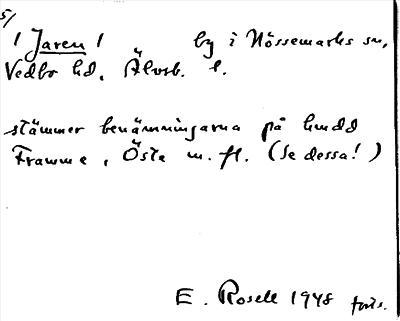 5/
/ Jaren / by i Nössemarks sn,
Vedbo hd, Älvsb. l.
stämmer benämningarna på
Framme, Östa m. fl. (Se dessa!)
E. Rosell 1948 forts.